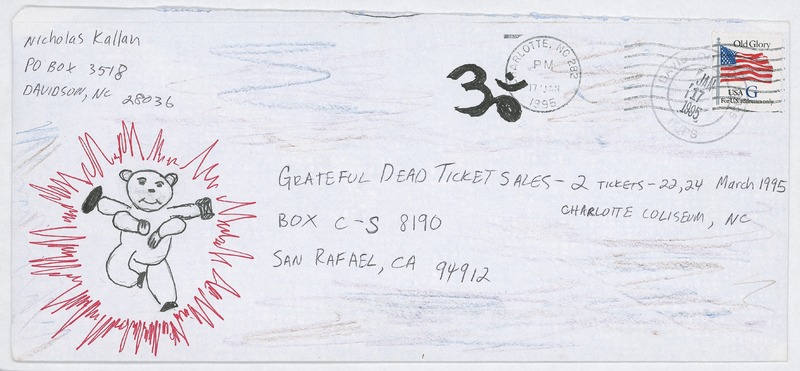 Nicholas Kallan
PO BOX 3518
DAVIDSON, NC 28036
ॐ
ARLOTTE, NC 282
PM
17 JAN
1995
JAN
17
1995
Old Glory
USA G
For U.S. addresses only
GRATEFUL DEAD TICKET SALES - 2 TICKETS - 22,24 March 1995
CHARLOTTE COLISEUM, NC
BOX C-S 8190
SAN RAFAEL, CA 94912